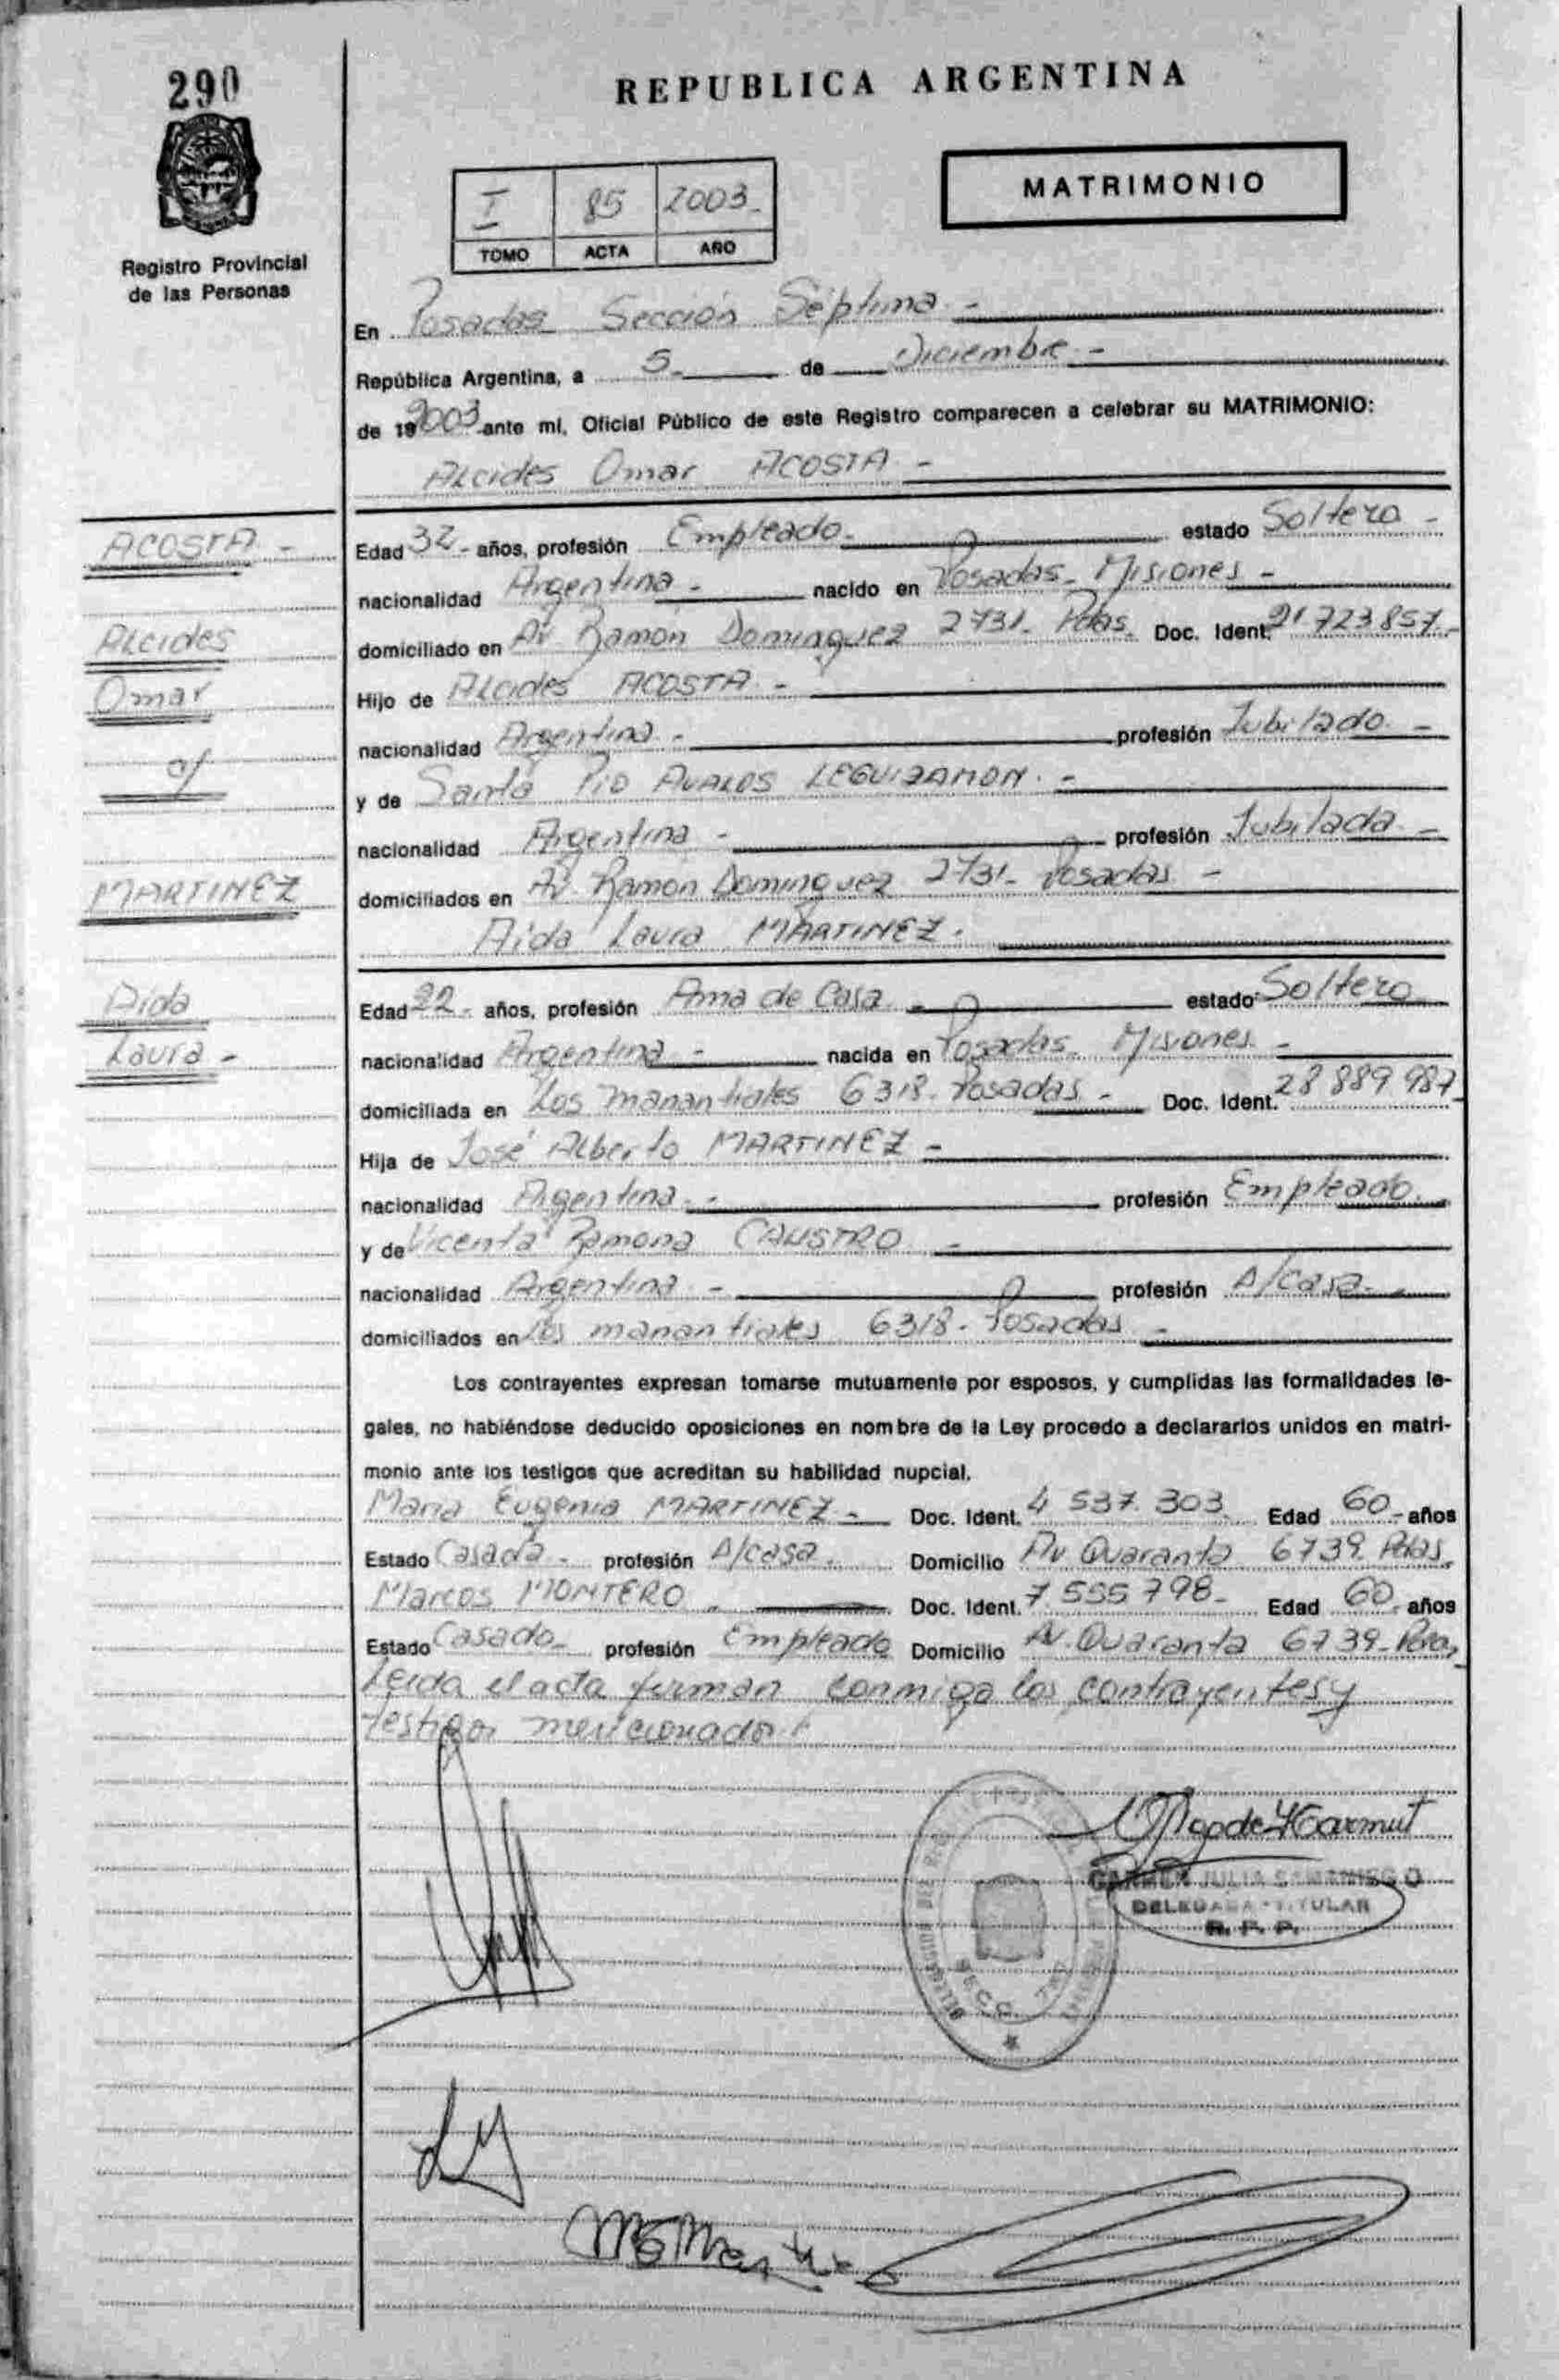 290
REPUBLICA ARGENTINA
MATRIMONIO
I 85 2003
TOMO ACTA AÑO
Registro Provincial
de las Personas
En Posadas Sección Séptima -
República Argentina, a 5 de Diciembre -
de 192003 ante mí, Oficial Público de este Registro comparecen a celebrar su MATRIMONIO:
Alcides Omar ACOSTA -
ACOSTA -
Alcides
Omar
c/
MARTINEZ
Aida
Laura -
Edad 32 - años, profesión Empleado estado Soltero -
nacionalidad Argentina - nacido en Posadas - Misiones -
domiciliado en Av Ramón Dominguez 2731 - Pdas. Doc. Ident. 21 723 857 -
Hijo de Alcides ACOSTA -
nacionalidad Argentina - profesión Jubilado -
y de Santa Pio AVALOS LEGUIZAMON -
nacionalidad Argentina - profesión Jubilada -
domiciliados en Av. Ramón Dominguez 2731 - Posadas -
Aida Laura MARTINEZ -
Edad 22 - años, profesión Ama de Casa - estado Soltero
nacionalidad Argentina - nacida en Posadas - Misiones -
domiciliada en Los manantiales 6318 - Posadas - Doc. Ident. 28 889 987 -
Hija de José Alberto MARTINEZ -
nacionalidad Argentina - profesión Empleado
y de Vicenta Ramona -
nacionalidad Argentina - profesión A/casa -
domiciliados en Los manantiales 6318 - Posadas -
Los contrayentes expresan tomarse mutuamente por esposos, y cumplidas las formalidades le-
gales, no habiéndose deducido oposiciones en nombre de la Ley procedo a declararlos unidos en matri-
monio ante los testigos que acreditan su habilidad nupcial.
Maria Eugenia MARTINEZ - Doc. Ident. 4 537 303 Edad 60 - años
Estado Casada - profesión A/casa. Domicilio Av Quaranta 6739 Pdas.
Marcos MONTERO Doc. Ident. 7 555 798 - Edad 60 - años
Estado Casado - profesión Empleado Domicilio Av. Quaranta 6739 -
Leida el acta firman conmigo los contrayentes y
testigos mencionados
CARMEN JULIA SAMANIEGO
DELEGADA TITULAR
R. P. P.